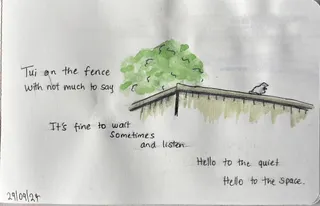 Tui on the fence
with not much to say
It's fine to wait
sometimes
and listen
Hello to the quiet
Hello to the space.
29/09/24